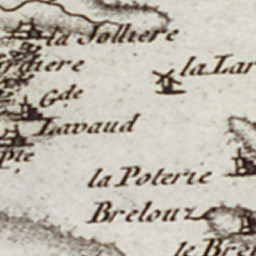 la Jolliere
la Lar
Gde
Lavaud
la Poterie
Brelouz
le Bre